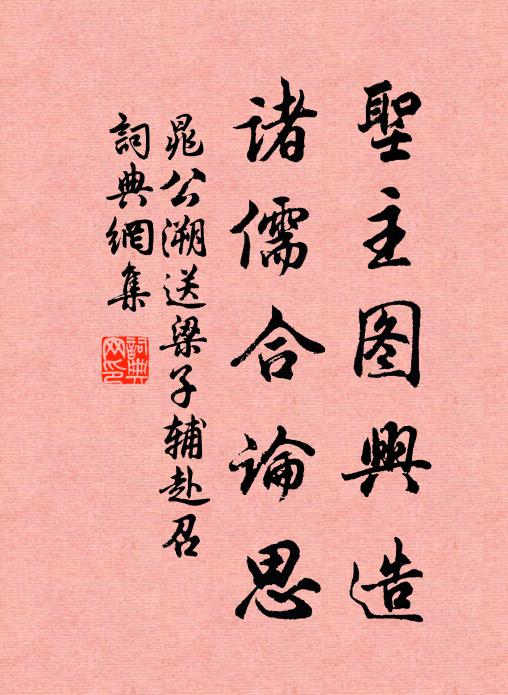 聖主图興造
諸儒合論思
晁公溯送梁子辅赴召
詞典網集
詞典網印